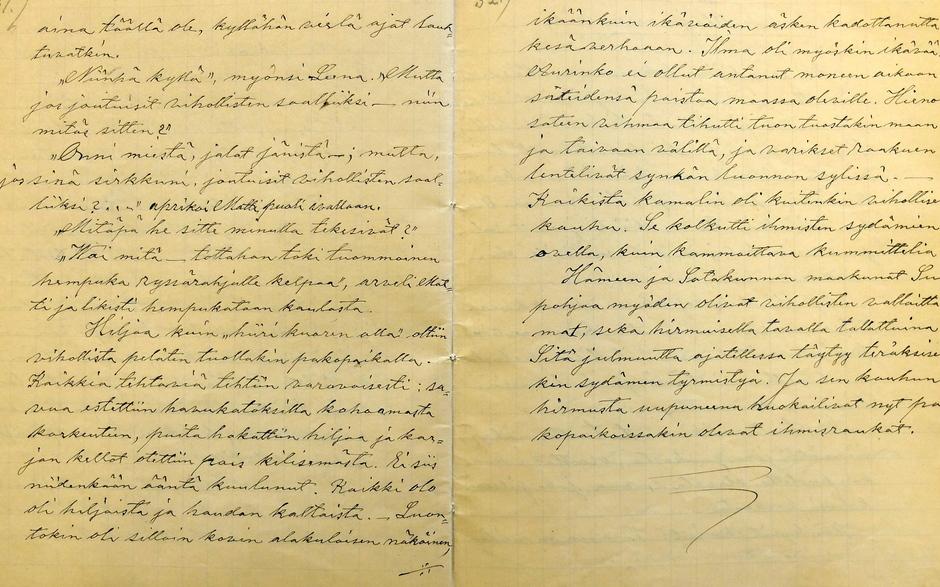 aina täällä ole, kyllähän vielä ajat laut-
tuvatkin.
"Niinpä kyllä", myönsi Leena. "Mutta
jos joutuisit vihollisten saaliiksi — niin
mitäs sitten?"
"Onni miestä, jalat jänistä —; mutta,
jos sinä sirkkuni, joutuisit vihollisten saa-
liiksi?..." aprikoi Matti puoli ivallaan.
"Mitäpä he sitte minulla tekisivät?"
"Kai mitä — tottahan toki tuommoinen
hempukka ryssärähjälle kelpaa", arveli Mat-
ti ja likisti hempukataan kaulasta.
Hiljaa kuin "hiiri kuoren alla" oltiin
vihollista peläten tuollakin pakopaikalla.
Kaikkia tehtäviä tehtiin varovaisesti: sa-
vua estettiin havukatoksilla kohoamasta
korkeuteen, puita hakattiin hiljaa ja kar-
jan kellot otettiin pois kilisemästä. Ei siis
niidenkään ääntä kuulunut. Kaikki olo
oli hiljaista ja haudan kaltaista. — Luon-
tokin oli silloin kovin alakuloisen näköinen,
32.)
ikäänkuin ikävöiden äsken kadottanutta
kesäverhoaan. Ilma oli myöskin ikävää
Aurinko ei ollut antanut moneen aikaan
säteidensä paistaa maassa oleville. Hieno
sateen vihmaa tihutti tuon tuostakin maan
ja taivaan väliltä, ja varikset raakuen
lentelivät synkän luonnon sylissä. —
Kaikista kamalin oli kuitenkin vihollise
kauhu. Se kolkutti ihmisten sydämien
ovella, kuin kammoittava kummittelia
Hämeen ja Satakunnan maakunat Su
pohjaa myöden olivat vihollisten valloitta
mat, sekä hirmuisella tavalla talattuina
Sitä julmuutta ajatellessa täytyy teräksise
kin sydämen tyrmistyä. Ja sen kauhun
hirmusta uupuneena huokailivat nyt pa
kopaikoissakin olevat ihmisraukat.